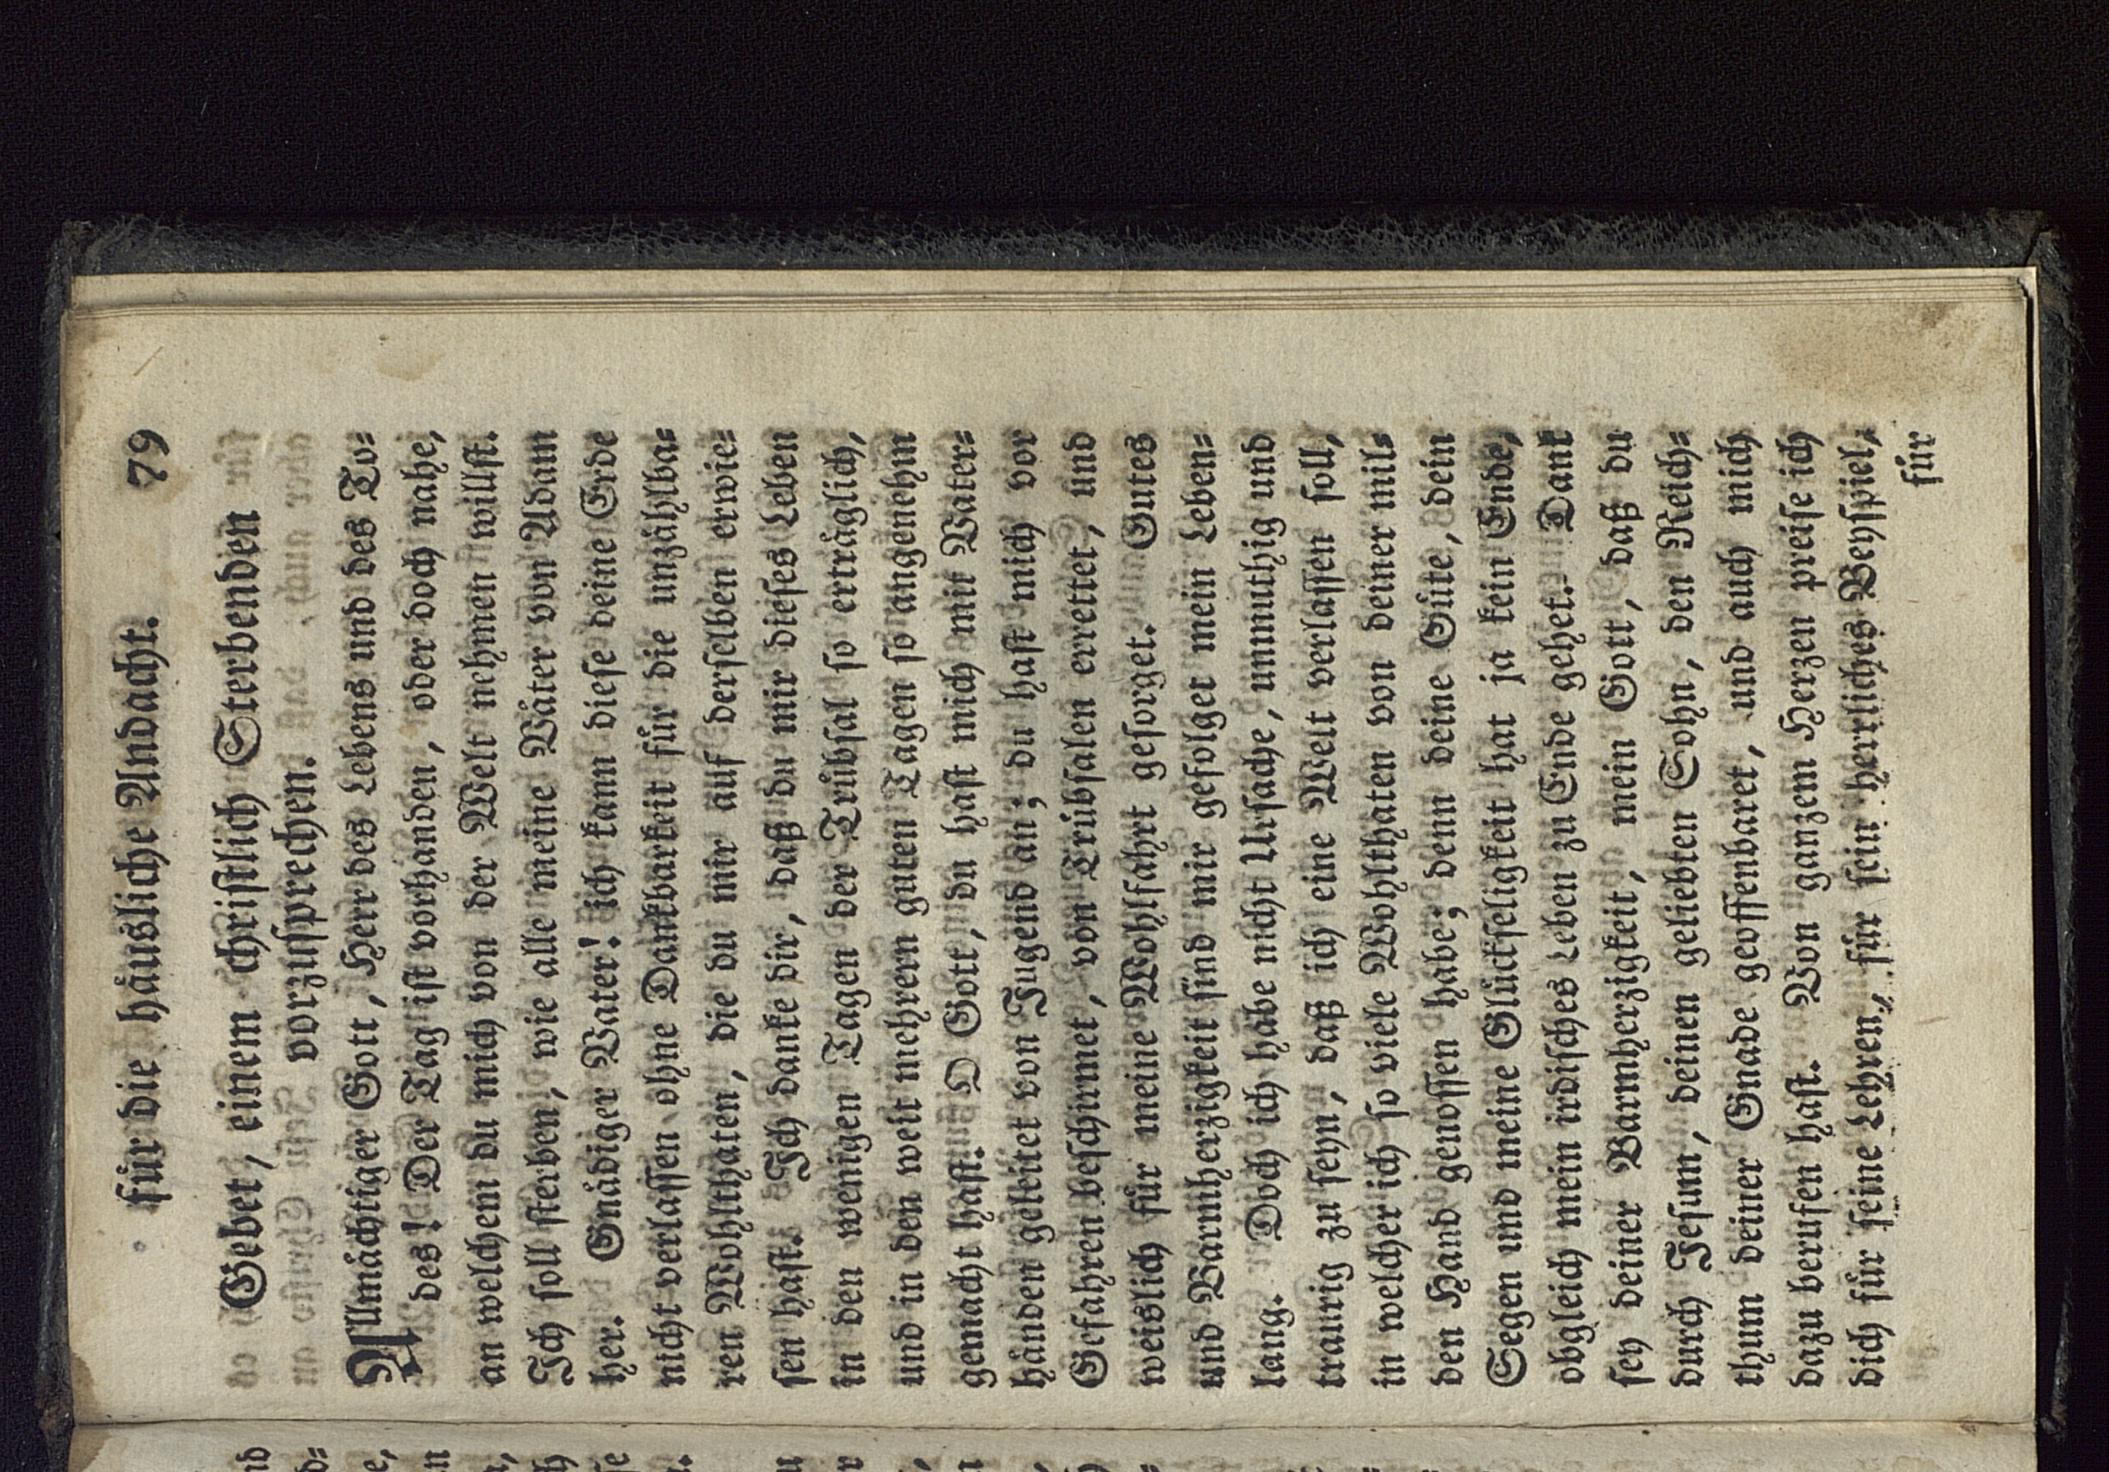 für die häusliche Andacht. 79
Gebet, einem christlich Sterbenden
vorzusprechen.
Allmächtiger Gott, Herr des Lebens und des To-
des! Der Tag ist vorhanden, oder doch nahe,
an welchem du mich von der Welt nehmen willst.
Ich soll sterben, wie alle meine Väter von Adam
her. Gnädiger Vater! ich kann diese deine Erde
nicht verlassen ohne Dankbarkeit für die unzählba-
ren Wohlthaten, die du mir auf derselben erwie-
sen hast. Ich danke dir, daß du mir dieses Leben
in den wenigen Tagen der Trübsal so erträglich,
und in den weit mehrern guten Tagen so angenehm
gemacht hast. O Gott, du hast mich mit Vater-
händen geleitet von Jugend an; du hast mich vor
Gefahren beschirmet, von Trübsalen errettet, und
weislich für meine Wohlfahrt gesorget. Gutes
und Barmherzigkeit sind mir gefolget mein Leben-
lang. Doch ich habe nicht Ursache, unmuthig und
traurig zu seyn, daß ich eine Welt verlassen soll,
in welcher ich so viele Wohlthaten von deiner mil-
den Hand genossen habe; denn deine Güte, dein
Segen und meine Glückseligkeit hat ja kein Ende,
obgleich mein irdisches Leben zu Ende gehet. Dank
sey deiner Barmherzigkeit, mein Gott, daß du
durch Jesum, deinen geliebten Sohn, den Reich-
thum deiner Gnade geoffenbaret, und auch mich
dazu berufen hast. Von ganzem Herzen preise ich
dich für seine Lehren, für sein herrliches Beyspiel,
für